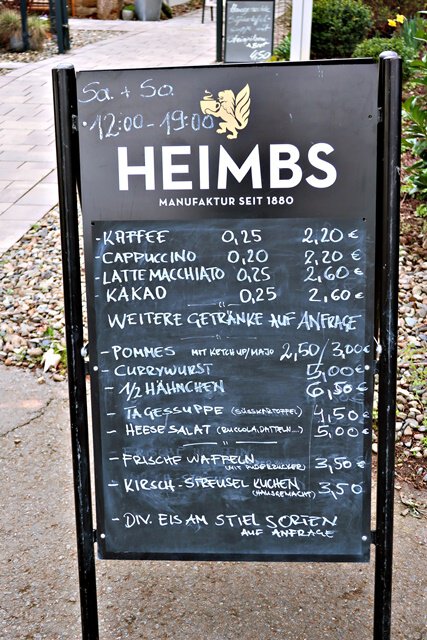 Sa. + So.
12:00-19:00
HEIMBS
MANUFAKTUR SEIT 1880
- KAFFEE 0,25 2,20 €
- CAPPUCCINO 0,20 2,20 €
- LATTE MACCHIATO 0,25 2,60 €
- KAKAO 0,25 2,60 €
WEITERE GETRÄNKE AUF ANFRAGE
- POMMES MIT KETCHUP/MAJO 2,50/3,00€
- CURRYWURST 5,00€
- 1/2 HÄHNCHEN 6,50€
- TAGESSUPPE (SÜSSKARTOFFEL) 4,50€
- HEESE SALAT (RUCCOLA, DATTELN...) 5,00€
- FRISCHE WAFFELN 3,50€
(MIT PUDERZUCKER)
- KIRSCH-STREUSEL KUCHEN 3,50
(HAUSGEMACHT)
- DIV. EIS AM STIEL SORTEN
AUF ANFRAGE